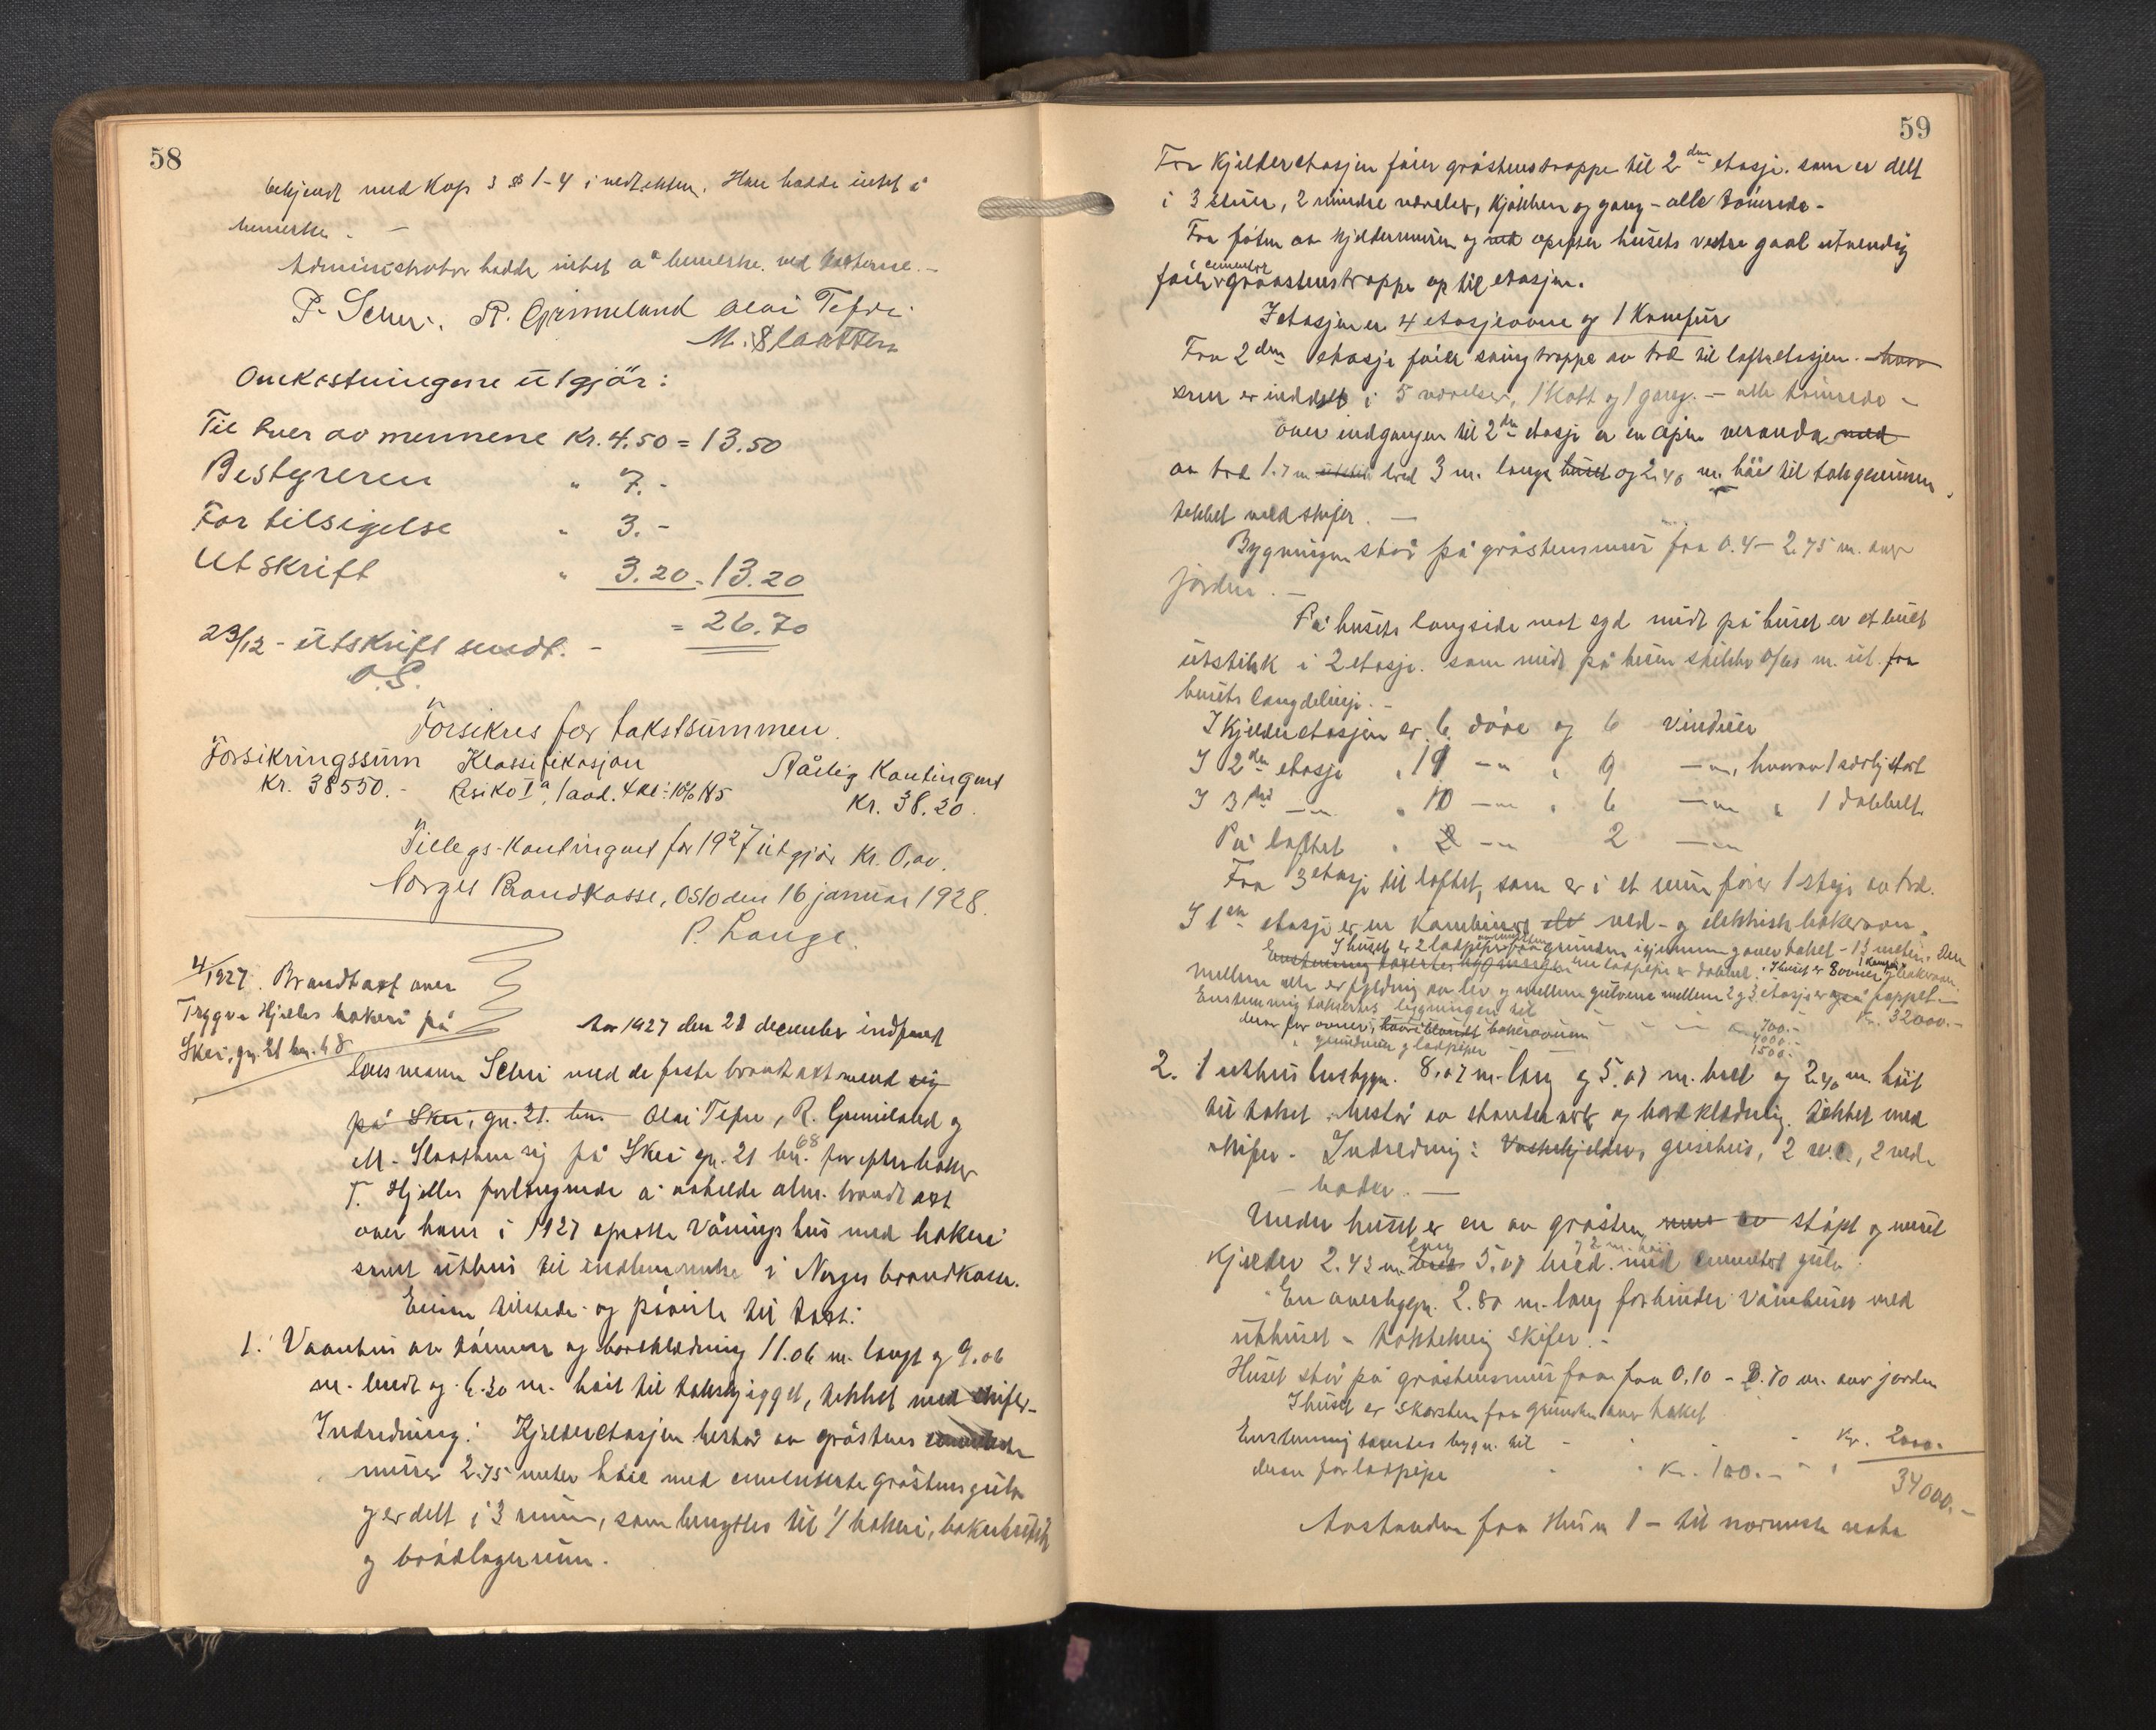 58
bekjendt med Kap 3 § 1-4 i vedtekten. Han hadde intet å
bemerke. -
Administrator hadde intet å bemerke ved takterne. -
P. Scheri. R. Grimeland Olai Tefre.
M. Slaatten
Omkostningerne utgjör:
Til hver av mennene Kr. 4.50 = 13.50
Bestyreren " 7.-
For tilsigelse " 3.-
Utskrift " 3.20 = 13.20
= 26.70
23/12 - utskrift sendt. -
O.S.
Forsikres for takstsummen.
Forsikringssum Klassifikasjon Aarlig Kontingent
Kr. 38550.- Risiko Iª, 1 avd. 4 kl: Kr. 38.20.
Tillegs-Kontingent for 1927 utgjör Kr. 0,00.
Norges Brandkasse, Oslo den 16 januar 1928.
P. Lange.
4/1927. Brandtaxt over
Trygve Hjelles bakeri på
Skei, gn. 21 bn. 68
Aar 1927 den 21 december indfandt
lensmann Scheri med de faste brandtaxtmend sig
på Skei, gn. 21. bn. Olai Tefre, R. Grimeland og
M. Slaatten sig på Skei gn. 21 bn. 68 for efter
T. Hjelles forlangende å avholde alm. brandtaxt
over hans i 1927 opsatte våningshus med bakeri
samt uthus til indlemmelse i Norges brandkasse.
Eieren tilstede og påviste til taxt:
1. Vaanhus av tömmer og bordklædning 11.06 m. langt og 9.06
m. bredt og 6.30 m. höit til takskjegget, tekket med skifer.-
Indredning: Kjelderetasjen består av gråstens
murer 2.75 meter höie med cementerte gråstensgulv
og er delt i 3 rum, som benyttes til 1/ bakeri,
og brödlagerrum.
59
Fra Kjelderetasjen förer gråstenstrappe til 2den etasje. som er delt
i 3 stuer, 2 mindre værelser, Kjökken og gang - alle tömrede -
Fra foten av kjeldermuren og ved opefter husets vestre gavl utvendig
förer cementert graastenstrappe op til etasjen.
I etasjen er 4 etasjeovne og 1 Komfur
Fra 2den etasje förer svingtrappe av træ til loftsetasjen. hvor
som er inddelt i 5 værelser, 1 Kott og 1 gang. - alle tömrede -
Over indgangen til 2den etasje er en åpen veranda med
av træ 1.7 m bred 3 m. lang huset og 2.40 m. höi til takgesimsen,
tekket med skifer. -
Bygningen står på gråstensmur fra 0.4 - 2.75 m. over
jorden. -
På husets langside mot syd midt på huset er et
utstikk i 2 etasje. som midt på husen stikker m. ut fra
husets
I Kjelderetasjen er 6 döre og 6 vinduer
I 2den etasje " 11 -"- " 9 -"-, hvorav 1 særlig stort
I 3die -"- " 10 -"- " 6 -"- " 1 dobbelt
På loftet " 2 -"- 2 -"-
Fra 3 etasje til loftet, som er i et rum förer 1 stige av træ.
I 1ste etasje er en Kombinert ved- og elektrisk bakerovn.
I huset er 2 ladpiper fra grunden igjennem og over taket - 13 meter. Den
Enstemmig taxertes bygningen ene ladpipe er dobbelt. I huset er 8 ovner, 1 Komfur og bakerovn.
mellem alle er fyldning av ler og mellem gulvene mellem 2 og 3 etasje er også pappet. -
Enstemmig takseres bygningen til - - - - Kr. 32000.-
derav for ovner, bakerovnen 700.- 4000.-
" grundmur og ladpiper 1500.-
2. 1 uthusbygn. 8.07 m. lang og 5.07 m. bred og 2.40 m. höit
til taket. Består av stenderverk og bordklædning. Tekket med
skifer. - Indredning: Vaskekjelder, grisehus, 2 w.c., 2 ved-
- boder. -
Under huset er en av gråsten mur av stöpt og muret
Kjelder 2.43 m bred lang 5.07 bred. og 2 m. höi med cementert gulv.
En overbygn. 2.80 m. lang forbinder vånhuset med
uthuset - taktekning skifer. -
Huset står på gråstensmur fra 0.10 - 2.70 m. over jorden
I huset er skorsten fra grunden over taket
Enstemmig taxertes bygn. til - - - - Kr. 2000.-
derav for ladpipe " " Kr. 100.- " "
34000.-
Avstanden fra Hus nr 1 - til nærmeste nabo